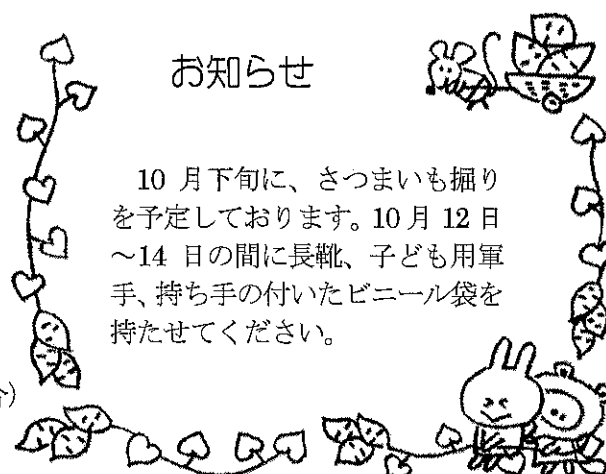 お知らせ
10 月下旬に、さつまいも掘り
を予定しております。10 月 12 日
～14 日の間に長靴、子ども用軍
手、持ち手の付いたビニール袋を
持たせてください。